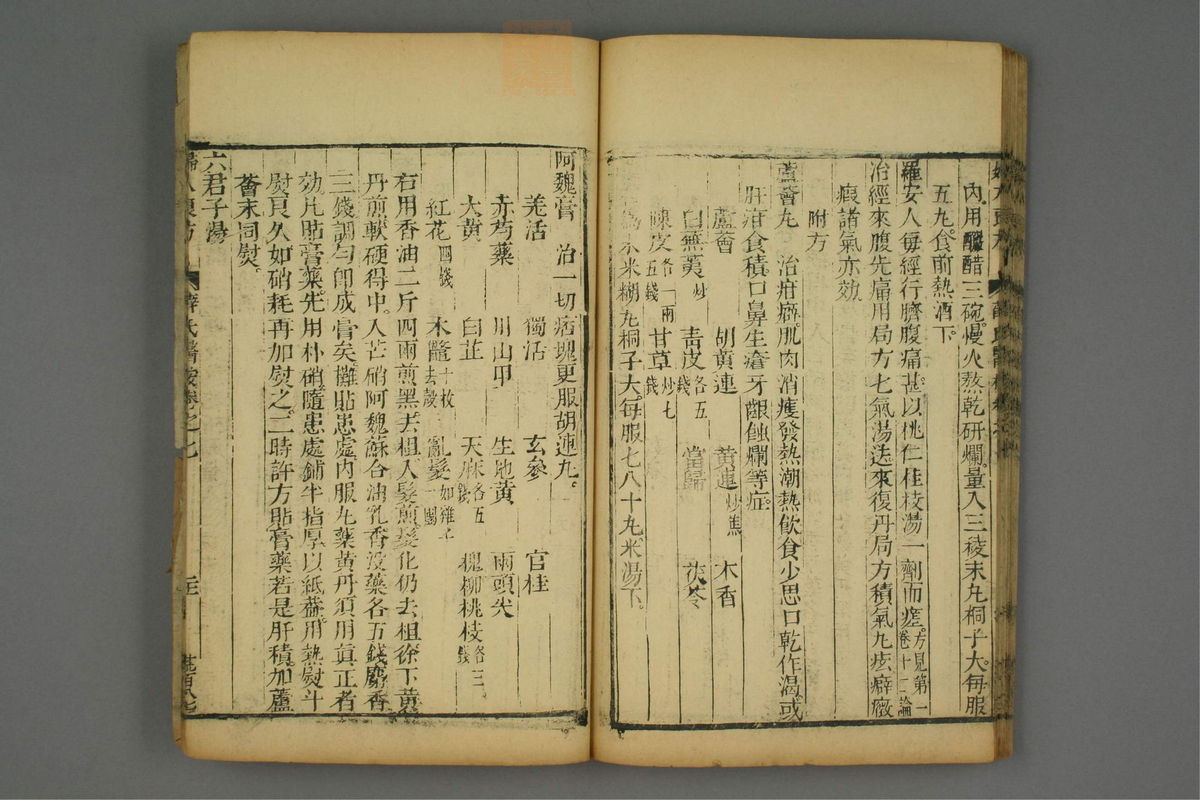 內用釅醋三碗慢火熬乾研爛量入三稜末丸桐子大每服
五丸食前熱酒下
羅安人每經行臍腹痛甚以桃仁桂枝湯一劑而瘥方見第一卷十二論
治經來腹先痛用局方七氣湯送來復丹局方積氣丸痃癖癥
瘕諸氣亦効
附方
蘆薈丸 治疳癖肌肉消瘦發熱潮熱飲食少思口乾作渴或
肝疳食積口鼻生瘡牙齦蝕爛等症
蘆薈 胡黃連 黃連炒焦 木香
白蕪荑炒 青皮各五錢 當歸 茯苓
陳皮各一兩五錢 甘草炒七錢
為末米糊丸桐子大每服七八十丸米湯下
阿魏膏 治一切痞塊更服胡連丸
羌活 獨活 玄參 官桂
赤芍藥 川山甲 生地黃 兩頭尖
大黃 白芷 天麻各五錢 槐柳桃枝各三錢
紅花四錢 木鱉十枚去殼 亂髮如雞子一團
右用香油二斤四兩煎黑去柤入髮煎髮化仍去柤徐下黃
丹煎軟硬得中入芒硝阿魏蘇合油乳香没藥各五錢麝香
三錢調勻即成膏矣攤貼患處內服丸藥黃丹須用眞正者
効凡貼膏藥先用朴硝隨患處鋪半指厚以紙蓋用熱熨斗
熨良久如硝耗再加熨之二時許方貼膏藥若是肝積加蘆
薈末同熨
六君子湯
婦人良方 薛氏醫案卷之七